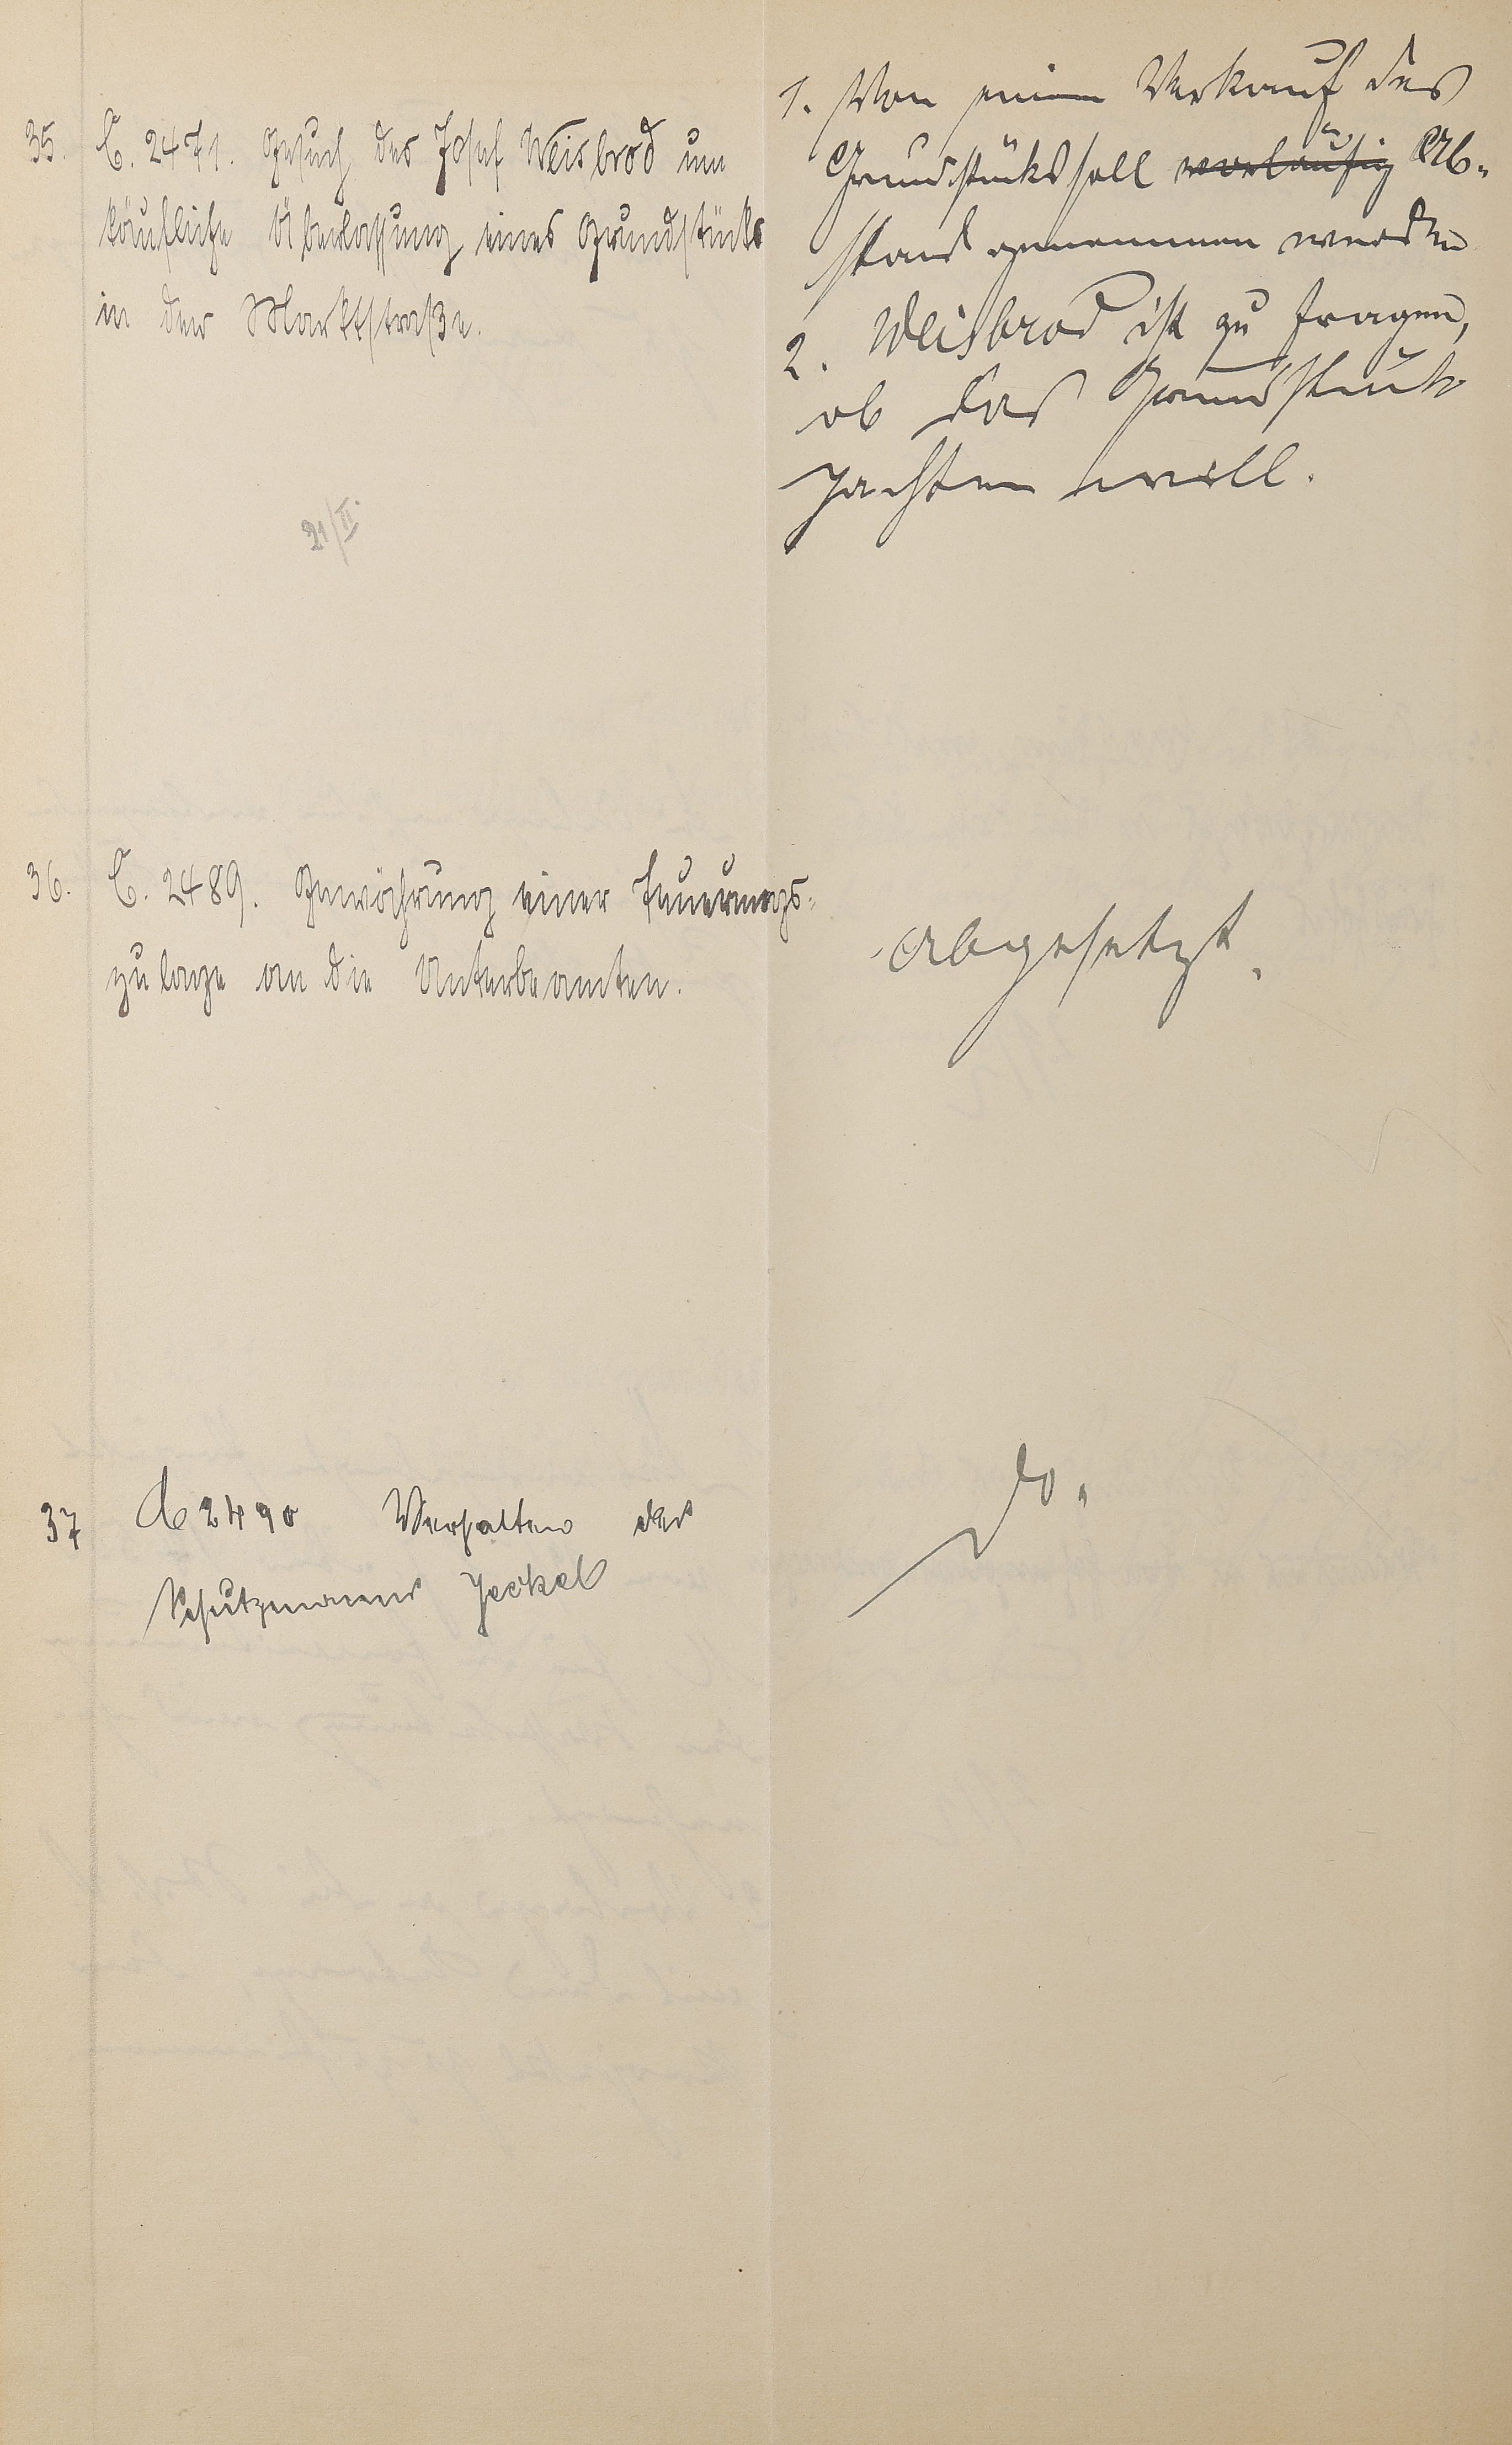 35. C. 2471. Gesuch des Josef Weisbrod um
käufliche Überlassung eines Grundstücks
in der Marktstraße.
21/II.
1. Von einem Verkauf des
Grundstücks soll vorläufig Ab-
stand genommen werden
2. Weisbrod ist zu fragen,
ob das Grundstück
pachten will.
36. C. 2489. Gewährung einer Teuerungs-
zulage an die Unterbeamten.
Abgesetzt.
37 C 2490 Verhalten des
Schutzmanns Jeckel
do.